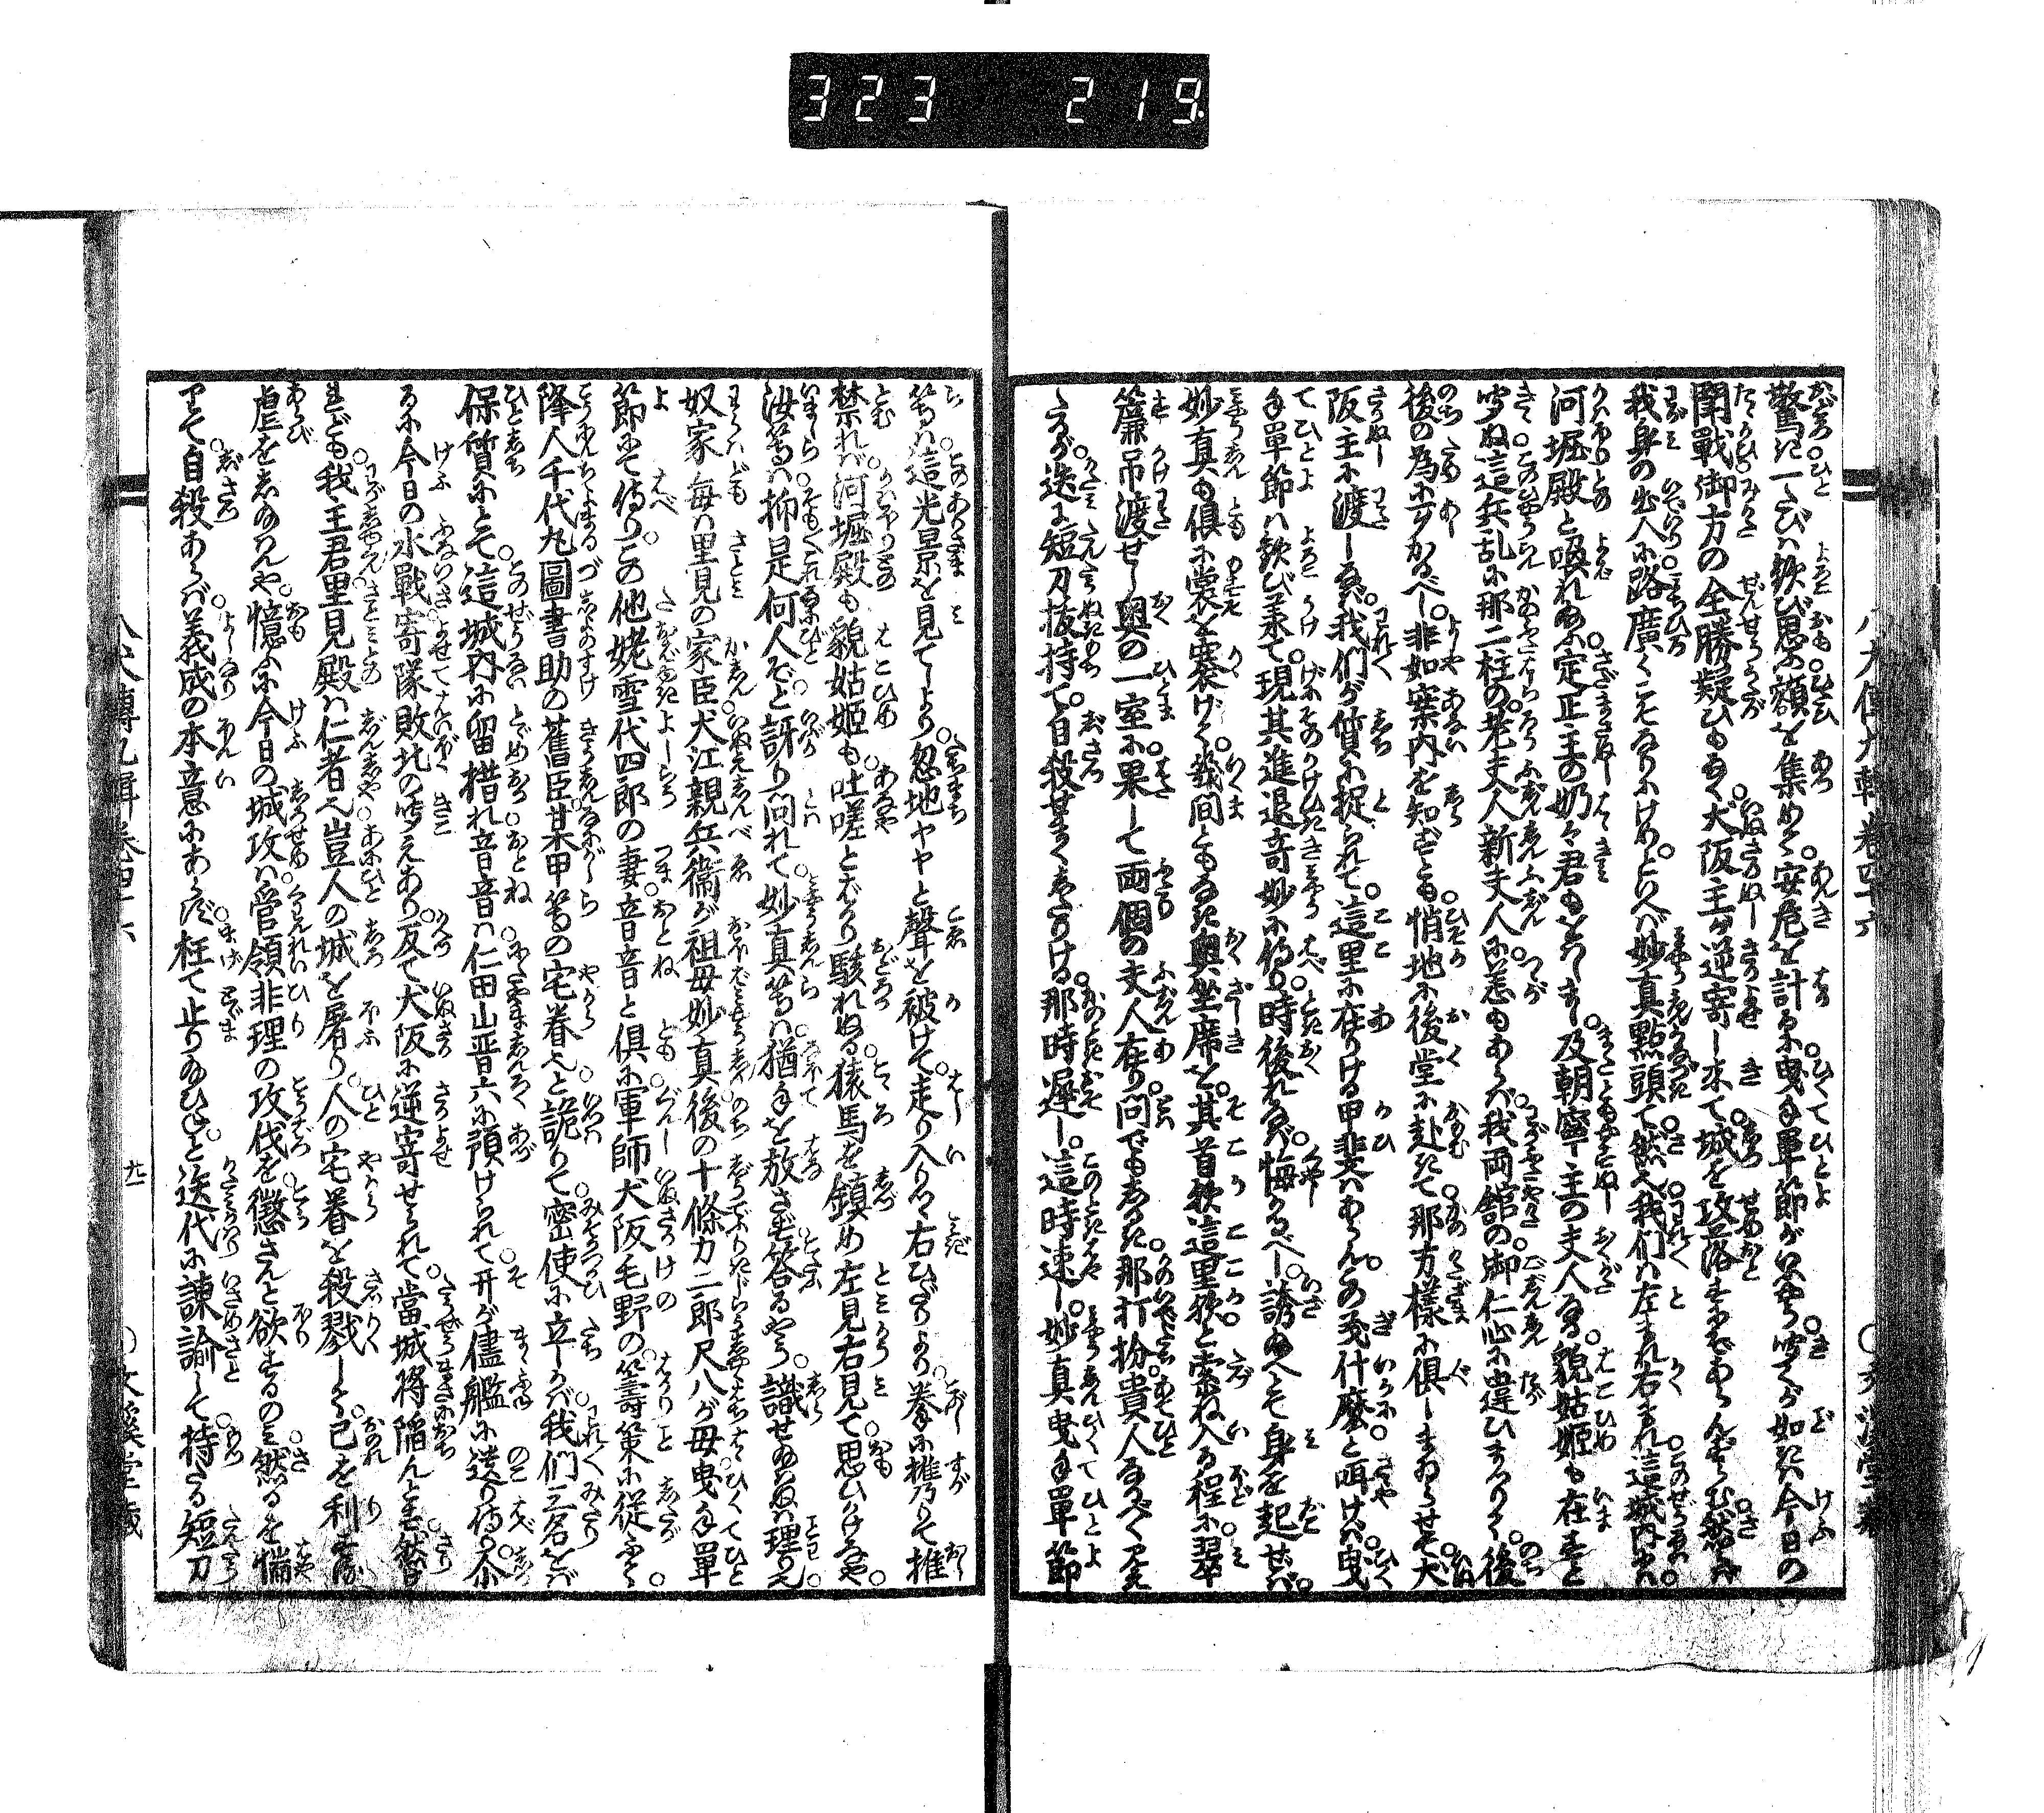 323 219
驚き一トたびハ歓び思ふ額を集めて安危を計るに曳手單節がいふやう聞くが如きハ今日の
闘戰御方の全勝疑ひもなく犬阪主が逆寄し来て城を攻落すにぞあらんずらむ然らバ
我身の出入に路廣くこそなりにけめといへバ妙真點頭て然バ我們ハ左まれ右まれ這城内にハ
河堀殿と喚れぬふ定正主の奶々君もをハします及朝寧主の夫人なる貌姑姫も在すと
聞ぬ這兵乱に那二柱の老夫人新夫人に恙もあらバ我両館の御仁心に違ひまつりて後
後の為に歹かるべし非如案内を知ずとも悄地に後堂に赴きて那方様に倶しまゐらせそ犬
阪主に渡し𛂞我們が質に捉られて這里に在りける甲斐ハあらんあ義什麼と咡けバ曳
手單節ハ歓び羕て現其進退奇妙に侍り時後れなバ悔かるべし誘ぬへとそ身を起せバ
妙真も倶に裳を褰げて幾間ともなき奥坐席を其首欤這里欤と索ね入る程に翠
簾吊渡せし奥の一室に果して両個の夫人在り問でもあるき那打扮貴人なるべく見え
しうが迭に短刀抜持て自殺せまくしたりける那時遅し這時速し妙真曳手單節
等ハ這光景を見てしより忽地ヤヤと聲を被けて走り入りつゝ右ひだりより拳に携りて推
禁れバ河堀殿も貌姑姫も吐嗟とばかり駭れぬる猿馬を鎮め左見右見て思ひかけなや
汝等ハ抑是何人ぞと訝り問れて妙真等ハ猶手を放さず答るやう識せぬハぬハ理りや
奴家毎ハ里見の家臣犬江親兵衞が祖母妙真後の十條力二郎尺八が母曳手單
節にて侍りこの他姥雪代四郎の妻音音と倶に軍師犬阪毛野の籌策に従ふて
降人千代丸圖書助の舊臣某甲等の宅眷と詭りて密使に立しかバ我們三名をバ
保質にとて這城内に留措れ音音ハ仁田山晋六に預けられて开が儘艦に送り侍りしに
るに今日の水戰寄隊敗北の聞えあり反て犬阪に逆寄せられて當城將陥んとす然
れども我主君里見殿ハ仁者なり豈人の城を屠り人の宅眷を殺戮して己を利する
虐をしぬハんや憶ふに今日の城攻ハ管領非理の攻伐を懲さんと欲するのミ然るを惴
りて自殺あらバ義成の本意にあらず枉て止りぬひねと迭代に諫諭して持たる短刀
八犬傳九輯卷四十六
九
文溪堂藏